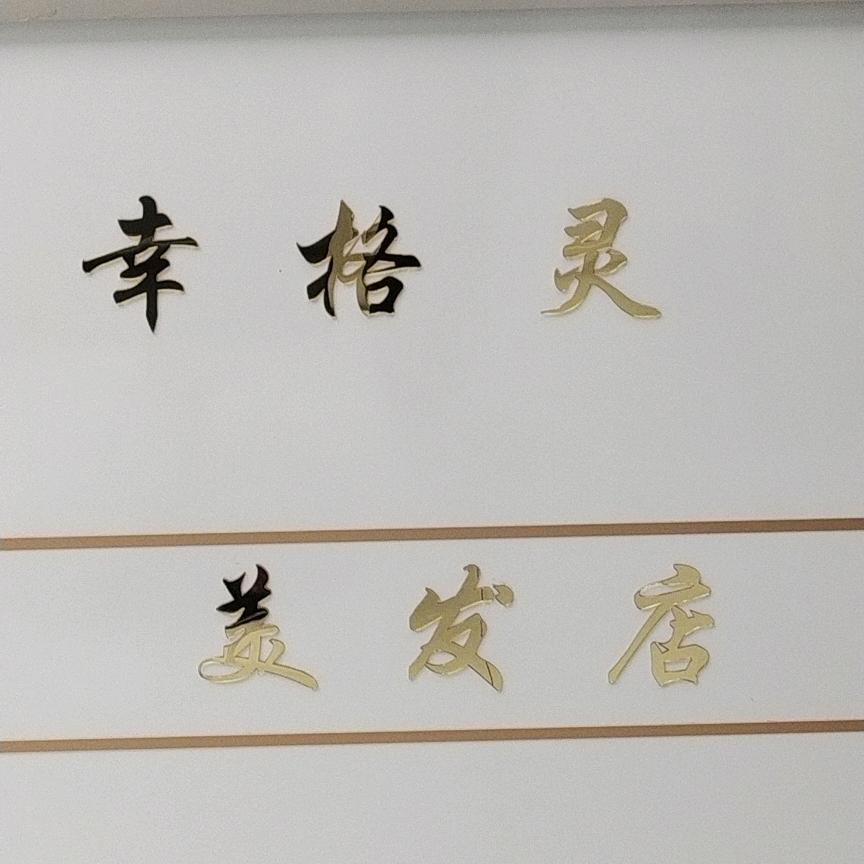 幸格灵
美发店